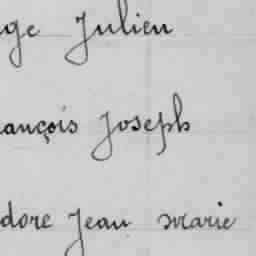 ge Julien
ançois Joseph
dore Jean Marie